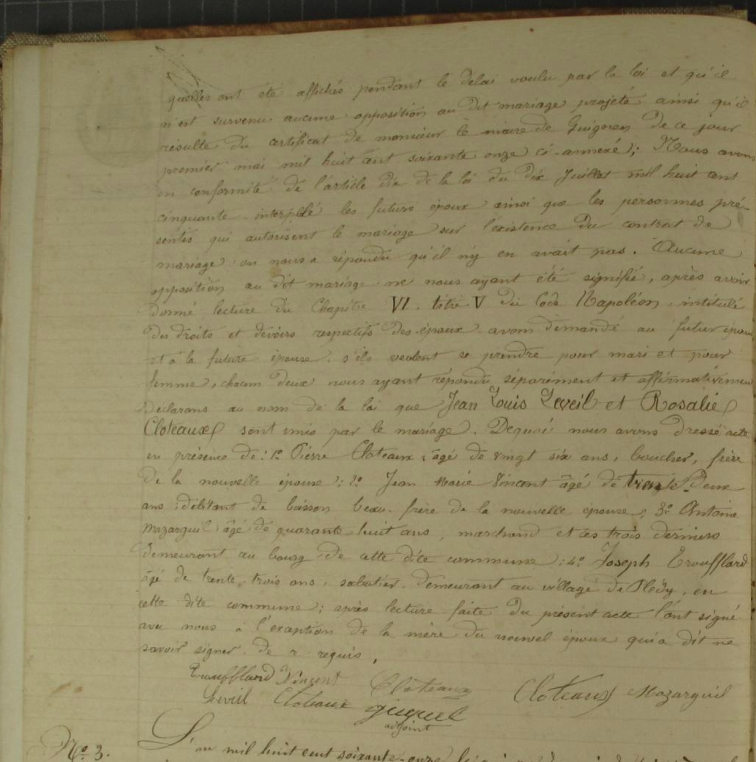 quelles ont été affichés pendant le délai voulu par la loi et qu'il
n'est survenu aucune opposition au dit mariage projeté ainsi qu'il
résulte du certificat de monsieur le maire de Guigoren de ce jour
premier mai mil huit cent soixante onze ci-annexé; Nous avons
en conformité de l'article de la loi du dix Juillet mil huit cent
cinquante interpelé les futurs époux ainsi que les personnes pré-
sentes qui autorisent le mariage sur l'existence du contrat de
mariage on nous a répondu qu'il n'y en avait pas. Aucune
opposition au dit mariage ne nous ayant été signifié, après avoir
donné lecture du Chapitre VI titre V du Code Napoléon, intitulé
des droits et devoirs respectifs des époux avons demandé au futur époux
et à la future épouse s'ils veulent se prendre pour mari et pour
femme, chacun deux nous ayant répondu séparément et affirmativement
Déclarons au nom de la loi que Jean Louis Leveil et Rosalie
Cloteaux sont unis par le mariage. Dequoi nous avons dressé acte
en présence de: 1º Pierre Cloteaux, âgé de vingt six ans, boucher, frère
de la nouvelle épouse; 2º Jean Marie Vincent âgé de trente deux
ans débitant de boisson beau-frère de la nouvelle épouse; 3º Antoine
Mazarguil âgé de quarante huit ans, marchand et ces trois derniers
demeurant au bourg de cette dite commune; 4º Joseph Troufflard
âgé de trente-trois ans, sabotier, demeurant au village de en
cette dite commune; après lecture faite du présent acte l'ont signé
avec nous à l'exception de la mère du nouvel époux qui a dit ne
savoir signer de ce requis.
Troufflard Vincent Cloteaux Cloteaux Mazarguil
Leveil Cloteaux
adjoint
Nº 3. L'an mil huit cent soixante-onze